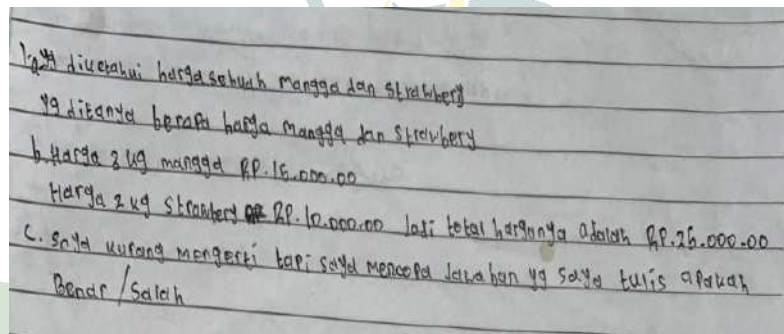 1.a yg diketahui harga sebuah mangga dan strawbery
yg ditanya berapa harga mangga dan strawbery
b. Harga 3 kg mangga RP.16.000.00
Harga 2 kg strawbery RP.10.000.00 Jadi total harganya adalah RP.26.000.00
c. saya kurang mengerti tapi saya mencoba jawaban yg saya tulis apakah
Benar / salah